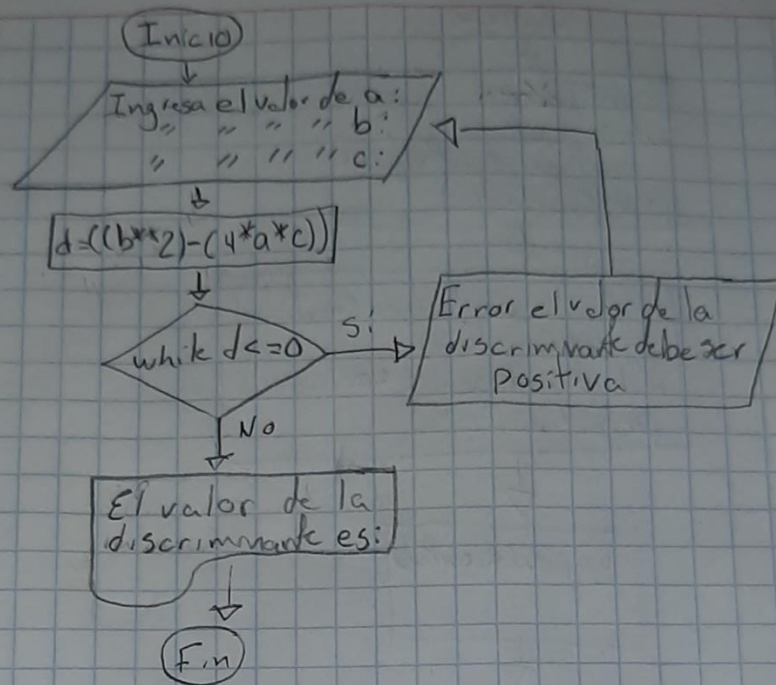 Inicio
Ingresa el valor de a:
" " " " b:
" " " " c:
d=((b**2)-(4*a*c))
while d<=0
Si
Error el valor de la
discriminante debe ser
Positiva
No
El valor de la
discriminante es:
Fin